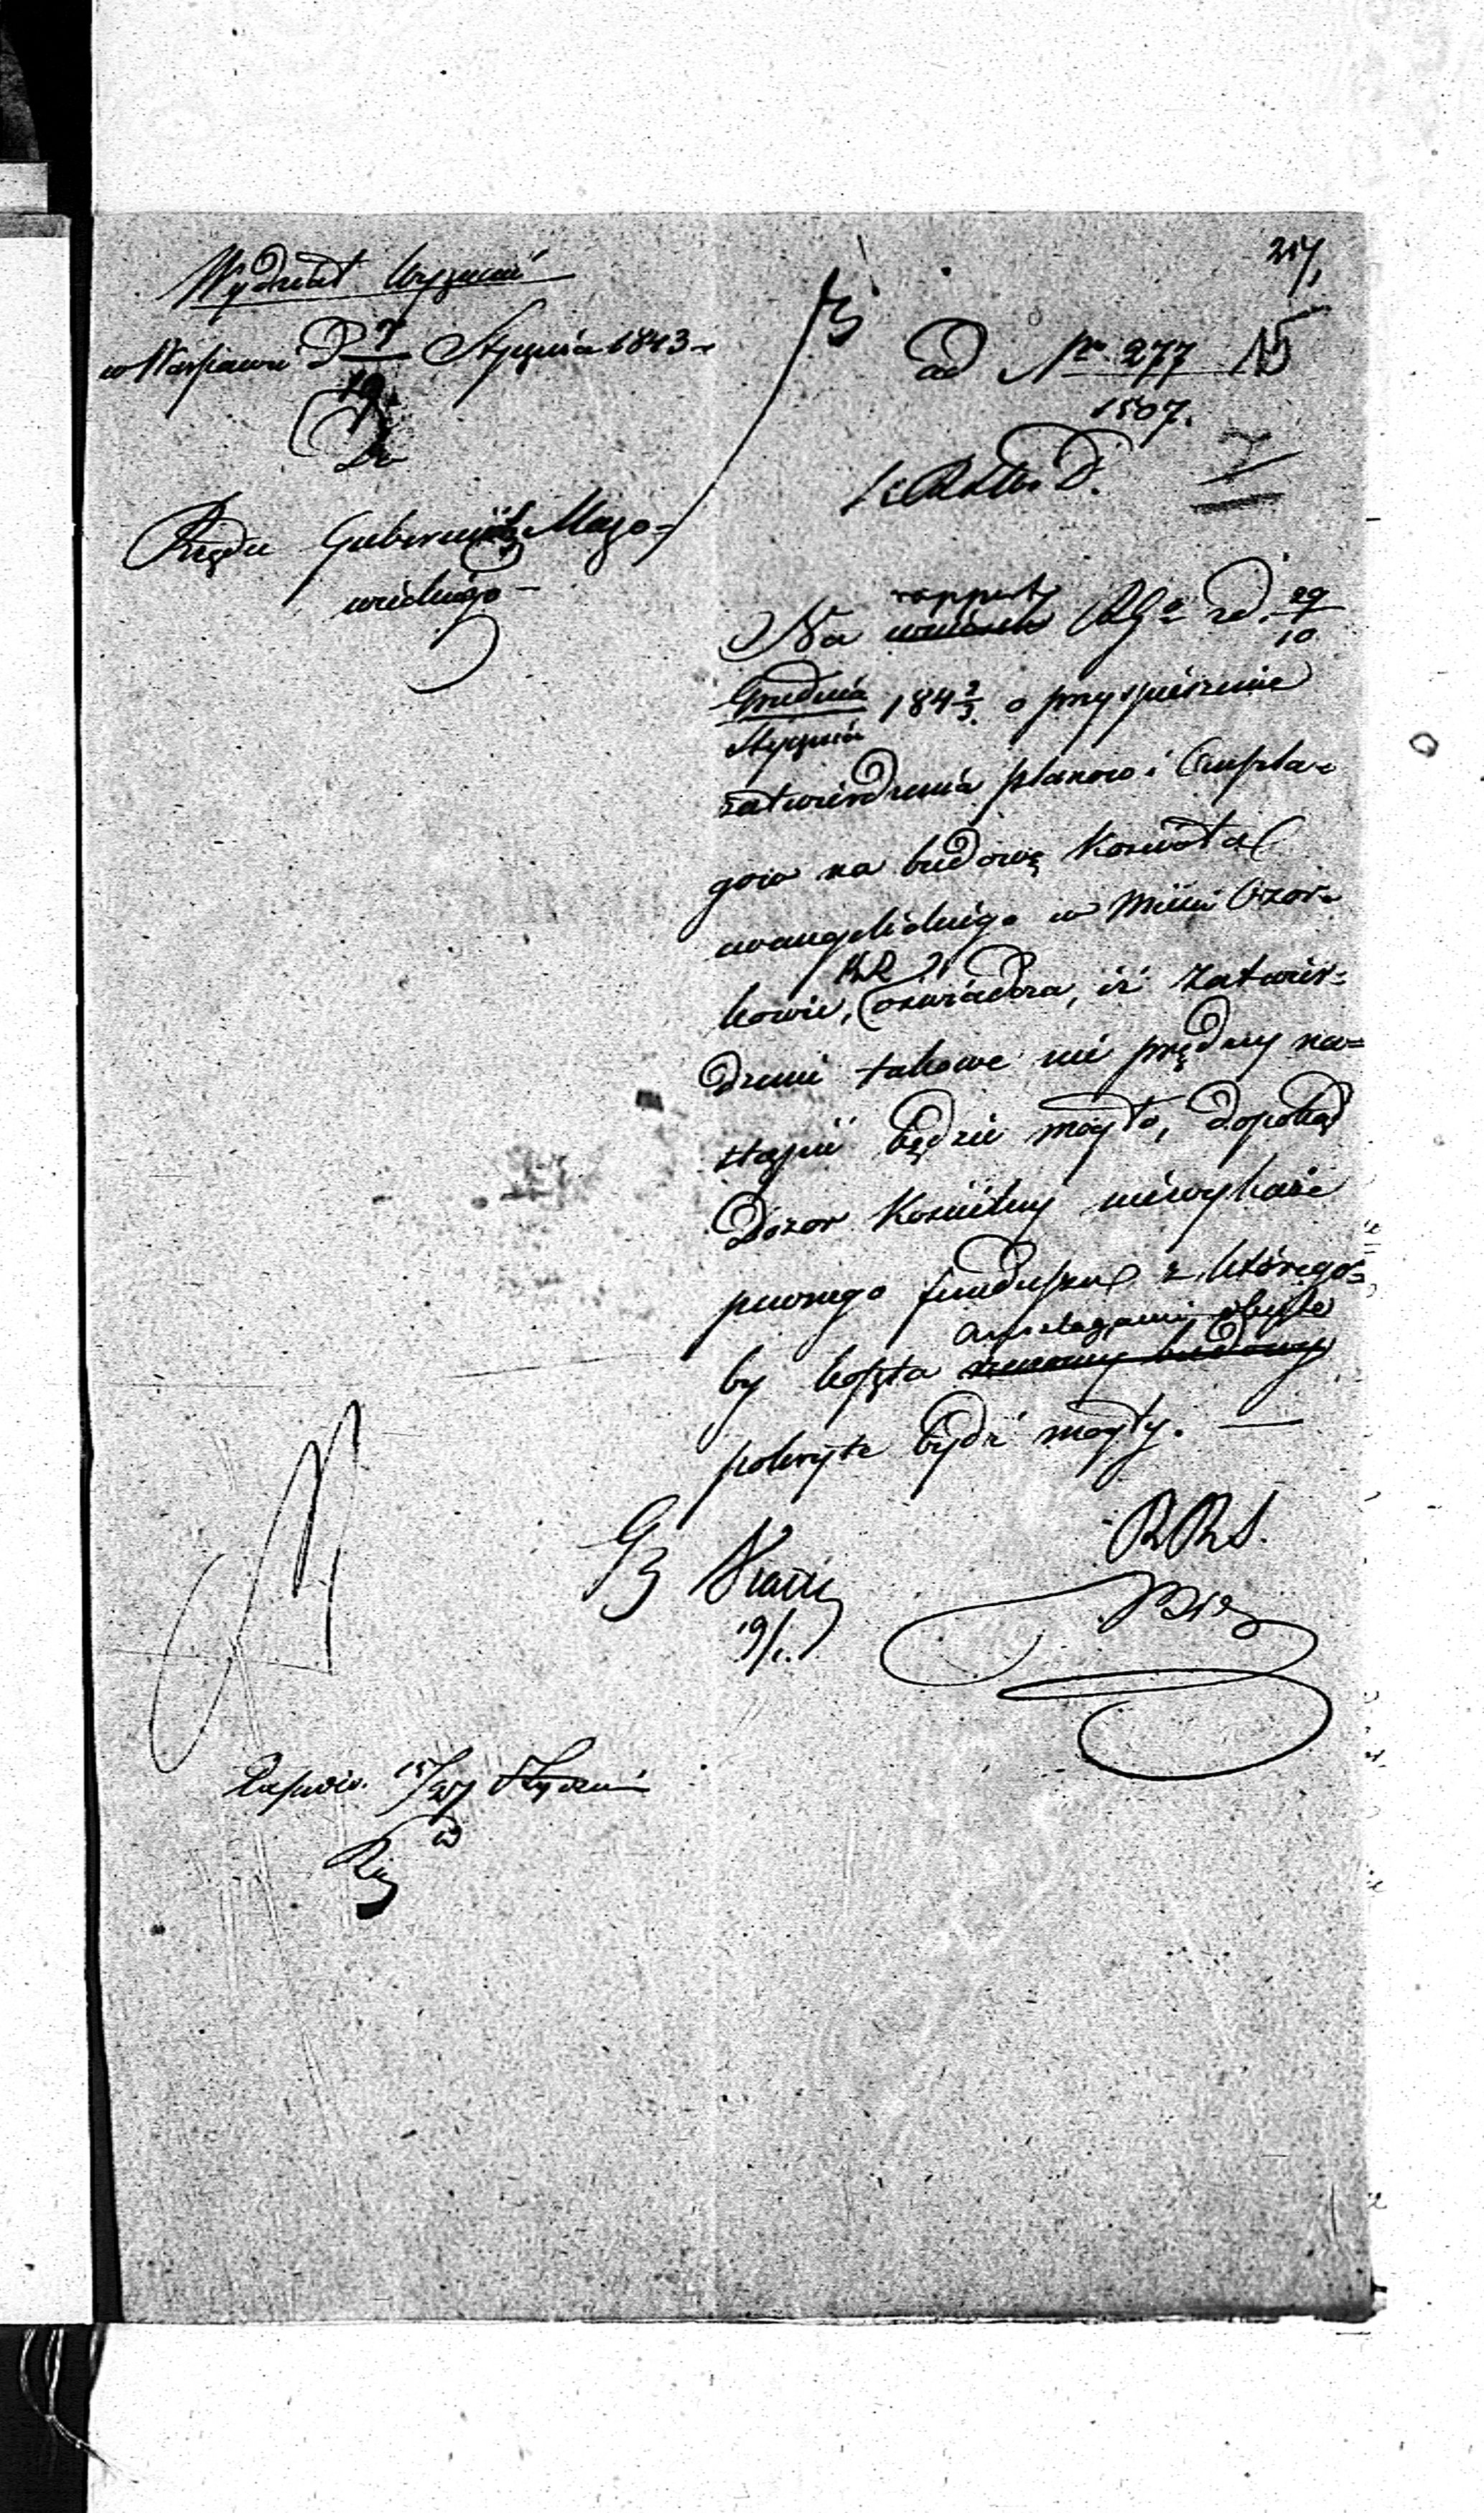 Wydział Wyznań
w Warszawie D 7/19 Stycznia 1843 r
Do
Rządu Gubernial: Mazo-
wieckiego –
217
ad Nro 277 15
1507.
Na rapport wniosek RGo z d. 29/10
Grudnia/Stycznia 184 2/3. o przyspieszenie
zatwierdzenia planow i Anszla-
gow na budowę Kościoła
ewangelickiego w Mieście Ozor-
kowie, KR oświadcza, iż zatwier-
dzenie takowe nie prędzey na-
stąpić będzie mogło, dopokąd
Dozor Kościelny niewykaże
pewnego funduszu z którego-
by koszta Anszlagami objęte
pokryte bydź mogły. —
19/1.
15/27 Stycznia